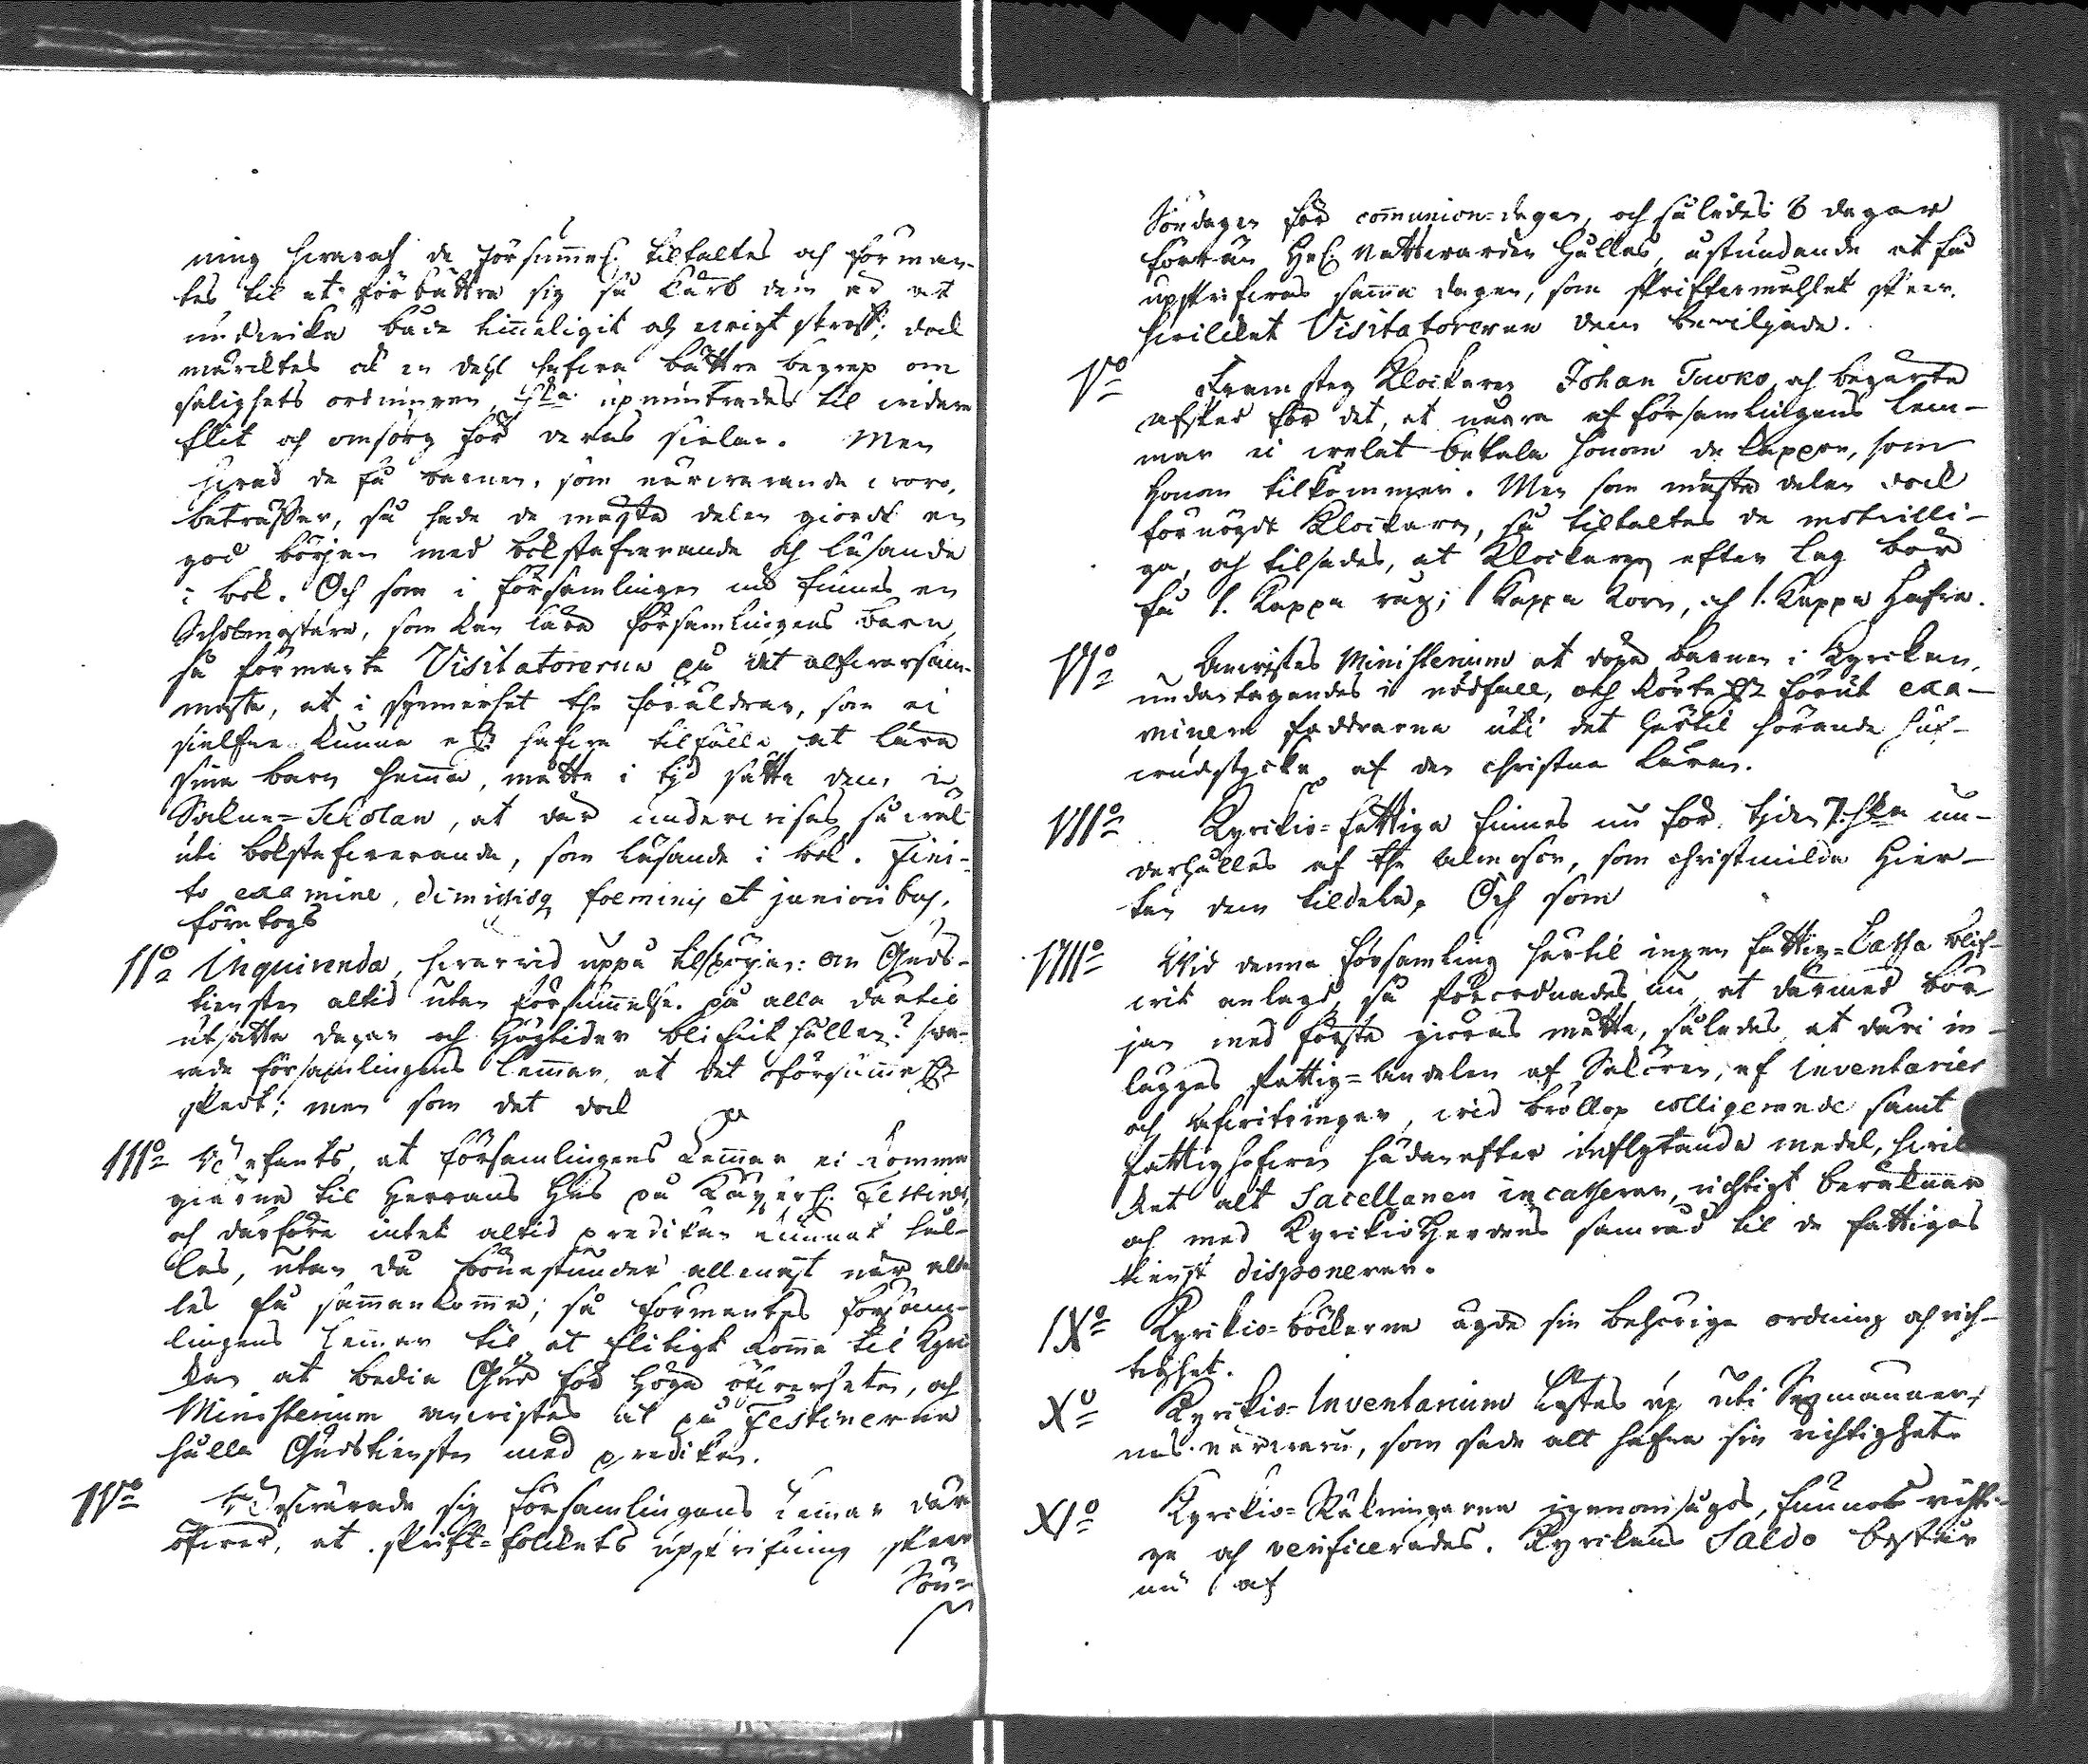 ning hwaraf de försumel. tiltaltes och förman-
tes til at förbättra sig så kärt dem är at
undwika både timmeligit och ewigt straff; dock
märcktes ock en dehl hafwa bättre begrep om
salighets ordningen, upmuntrades til widare
flit och omsorg för deras siälar. Men
hwad de få barnen, som närwarande woro,
beträffar, så hade de mästa delen giordt en
god början med bokstafwerande och läsande
i bok. Och som i församlingen nu finnes en
Scholmästare, som kan lära församlingens barn,
så förmante Visitatorerne på det alfwarsam-
maste, at i synnerhet the föräldrar, som ei
sielfwe kunna eller hafwa tilfälle at lära
sina barn hemma, måtte i tijd sätta dem i
Sokne=Scholan, at der underwisas så wäl
uti bokstafwerande, som läsande i bok. Fini-
to examine, dimissisq foeminis et junioribus,
företogs
II:o Inquirenda, hwarwid uppå tilspörjan: om Guds-
tiensten altid utan försummelse på alla dertil
utsatte dagar och Högtider blifwit hållen? swa-
rade församlingens Lemmar, at det oförsummel.
skedt; men som det dock
III:o Befants, at församlingens Lemmar ei komma
gierna til Herrans Hus på Kayserl. Festiner,
och därföre intet altid predikan kunnat hål-
las, utan då bönestunder allenast när alde-
les få sammankomma; så förmantes försam-
lingens Lemmar til at flitigt komma til Kyr-
kan at bedia Gud för höga öfwerheten, och
Ministerium anwistes at på Festinerne
hålla Gudstiensten med predikan.
IV:o Beswärade sig församlingens Lemmar där
öfwer, at skrift=folckets upskrifning sker
Sön=
Söndagen för communion=dagen, och således 8 dagar
förrän Hel. Nattwarden hålles, åstundande at få
upskrifwas samma dagen, som skriftermåhlet sker.
hwilcket Visitatorerne dem beviljade.
V:o Framsteg Klockaren Johan Tuoko, och begärte
afsked för det, at några af församlingens Lem-
mar ei welat betala honom de kappar, som
honom tilkommer. Men som mästa delen dock
förnögdt Klockaren, så tiltaltes de motwilli-
ga, och tilsades, at Klockaren efter lag bör
få 1. Kappa råg, 1 Kappa Korn, och 1. Kappa Hafra.
VI:o Anwistes Ministerium at döpa barnen i Kyrckan,
undertagandes i nödfall, och korteligen förut exa-
minera faddrarne uti det hertil hörande huf-
wudstycke af den christna Läran.
VII:o Kyrckio=fattiga finnes nu för tiden 7. hka un-
derhålles af the almosor, som christmilda Hier-
tan dem tildela. Och som
VIII:o Wid denna församling härtil ingen fattig=Cassa blif-
wit anlagd, så förordnades nu at dermed bör-
jan med första giöras måtte, således at deri in-
lägges fattig=andelen af Salören, af inventarier
och afwitringar, wid bröllop colligerande samt
fattighofwen hädanefter inflytande medel, hwil-
ket alt Sacellanen incasserar, richtigt beräknar
och med Kyrckioherdens samråd til de fattigas
tienst disponerar.
IX:o Kyrckio=böckerne ägde sin behöriga ordning och rich-
tighet.
X:o Kyrckio=Inventarium lästes up uti Sexmänner-
nas närwaro, som sade alt hafwa sin richtighet.
XI:o Kyrckio=Räkningarne igenomsågos, funnos richti-
ge och verificerades. Kyrckans Saldo består
nu af